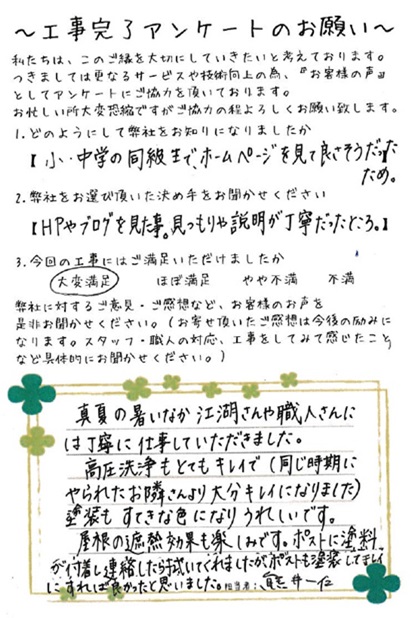 ～工事完了アンケートのお願い～
私たちは、このご縁を大切にしていきたいと考えております。
つきましては更なるサービスや技術向上の為、『お客様の声』
としてアンケートにご協力を頂いております。
お忙しい所大変恐縮ですがご協力の程よろしくお願い致します。
1.どのようにして弊社をお知りになりましたか
【小・中学の同級生で、ホームページを見て良さそうだった
ため。
2.弊社をお選び頂いた決め手をお聞かせください
【HPやブログを見た事。見つもりや説明が丁寧だったところ。】
3.今回の工事にはご満足いただけましたか
大変満足 ほぼ満足 やや不満 不満
弊社に対するご意見・ご感想など、お客様のお声を
是非お聞かせください。(お寄せ頂いたご感想は今後の励みに
なります。スタッフ・職人の対応、工事をしてみて感じたこと
など具体的にお聞かせください。)
真夏の暑いなか江湖さんや職人さんに
は丁寧に仕事していただきました。
高圧洗浄もとてもキレイで(同じ時期に
やられたお隣さんより大分キレイになりました)
塗装もすてきな色になりうれしいです。
屋根の遮熱効果も楽しみです。ポストに塗料
が付着し連絡したら拭いてくれましたがポストも塗装してキレイ
にすれば良かったと思いました。担当者: